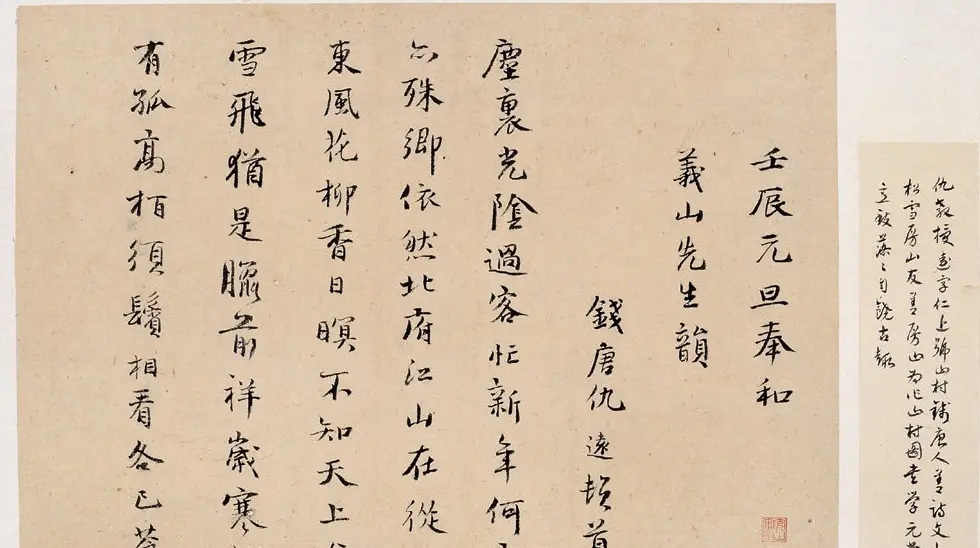 仇教授遠字仁上號山村錢唐人善詩文
松雪房山友善房山為作山村圖嘗學元
自饒古趣
壬辰元旦奉和
義山先生韻
錢唐仇遠頓首
塵裏光陰過客忙新年何
亦殊鄉依然北府江山在從
東風花柳香日暝不知天上
雪飛猶是臘前祥歲寒
有孤高栢須鬢相看各已